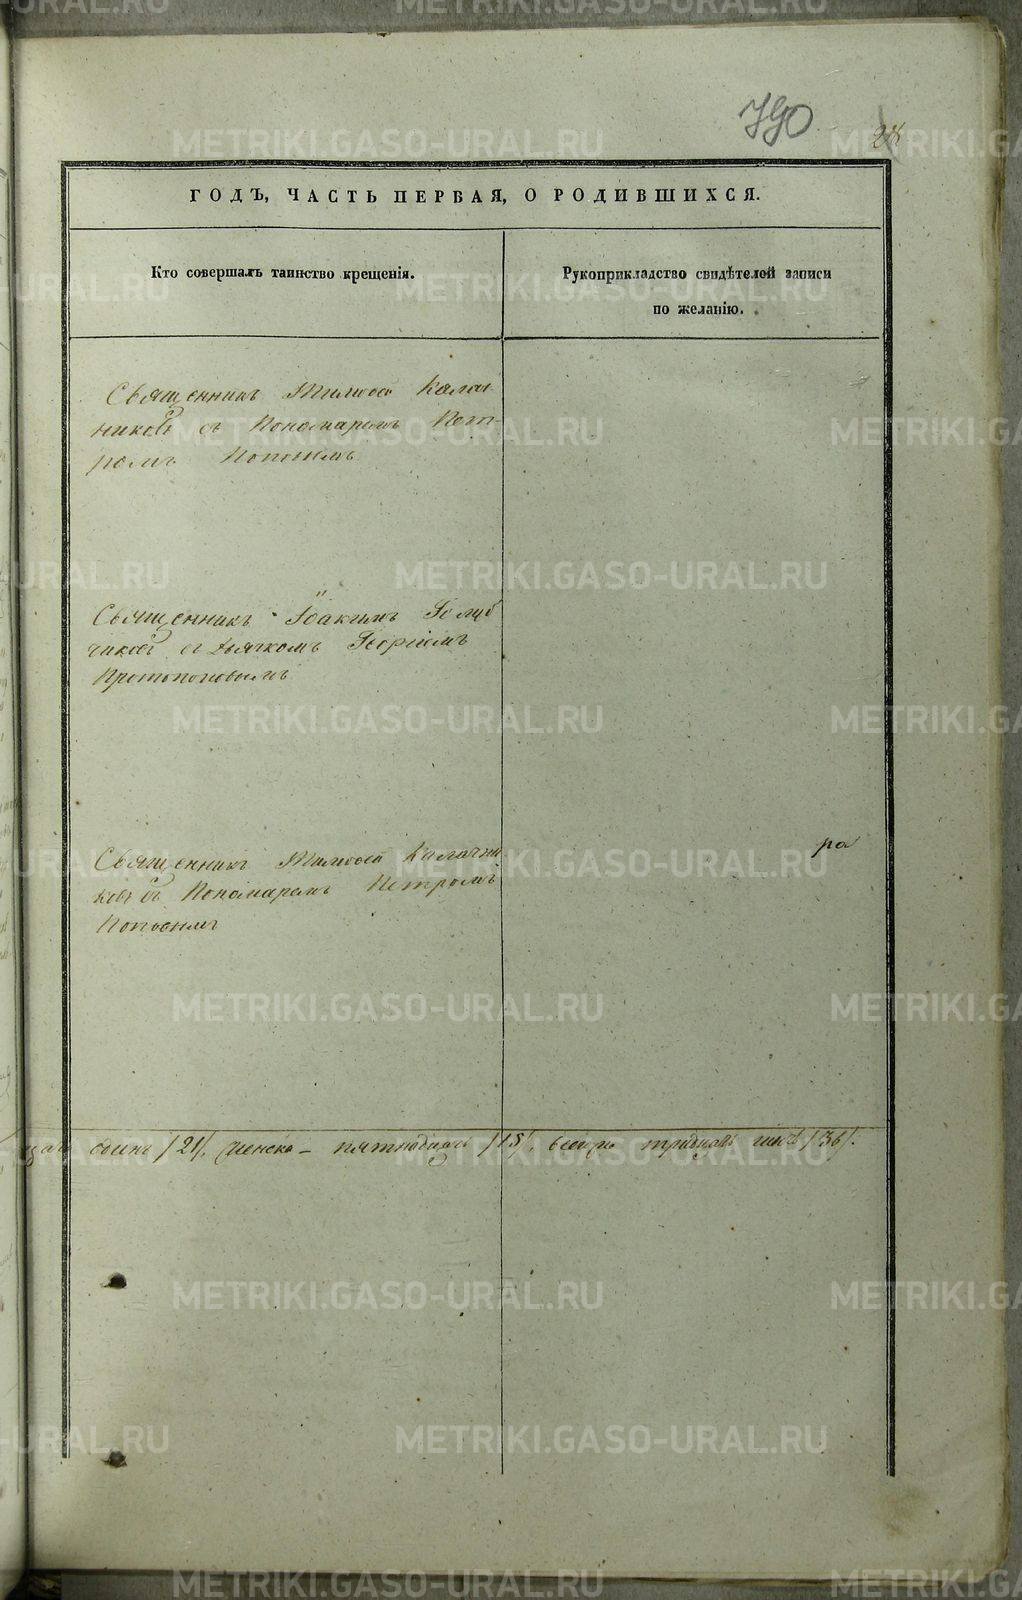 790
28
ГОДЪ, ЧАСТЬ ПЕРВАЯ, О РОДИВШИХСЯ.
Кто совершалъ таинство крещенія.
Рукоприкладство свидѣтелей записи
по желанію.
Священникъ Тимофей Калач-
никовъ съ Пономаремъ Пет-
ромъ Поповымъ
Священникъ Іоакимъ Голуб
чиковъ съ дьячкомъ Георгіемъ
Протопоповымъ
Священникъ Тимофей Калачни
ковъ съ Пономаремъ Петромъ
Поповымъ
ра
цать одинъ /21/. женска – пятнадцать /15/, всего тридцать шесть /36/.
METRIKI.GASO-URAL.RU